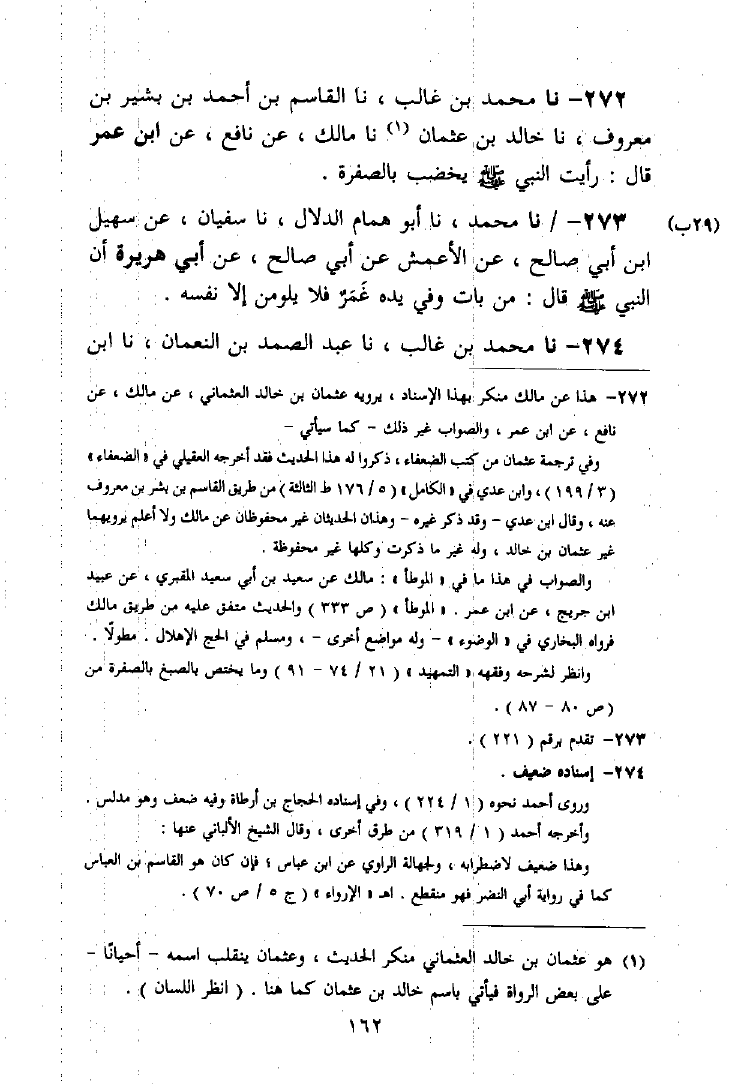 ٢٧٢- نا محمد بن غالب ، نا القاسم بن أحمد بن بشير بن
معروف ، نا خالد بن عثمان (١) نا مالك ، عن نافع ، عن ابن عمر
قال : رأيت النبي ﷺ يخضب بالصفرة .
(٢٩ب) ٢٧٣- / نا محمد ، نا أبو همام الدلال ، نا سفيان ، عن سهيل
ابن أبي صالح ، عن الأعمش عن أبي صالح ، عن أبي هريرة أن
النبي ﷺ قال : من بات وفي يده غَمَرٌ فلا يلومن إلا نفسه .
٢٧٤- نا محمد بن غالب ، نا عبد الصمد بن النعمان ، نا ابن
٢٧٢- هذا عن مالك منكر بهذا الإسناد ، يرويه عثمان بن خالد العثماني ، عن مالك ، عن
نافع ، عن ابن عمر ، والصواب غير ذلك - كما سيأتي -
وفي ترجمة عثمان من كتب الضعفاء ، ذكروا له هذا الحديث فقد أخرجه العقيلي في « الضعفاء »
( ٣ / ١٩٩ ) ، وابن عدي في « الكامل » ( ٥ / ١٧٦ ط الثالثة ) من طريق القاسم بن بشر بن معروف
عنه ، وقال ابن عدي - وقد ذكر غيره - وهذان الحديثان غير محفوظان عن مالك ولا أعلم يرويهما
غير عثمان بن خالد ، وله غير ما ذكرت وكلها غير محفوظة .
والصواب في هذا ما في « الموطأ » : مالك عن سعيد بن أبي سعيد المقبري ، عن عبيد
ابن جريج ، عن ابن عمر . « الموطأ » ( ص ٣٣٣ ) والحديث متفق عليه من طريق مالك
فرواه البخاري في « الوضوء » - وله مواضع أخرى - ، ومسلم في الحج الإهلال . مطولًا .
وانظر لشرحه وفقهه « التمهيد » ( ٢١ / ٧٤ - ٩١ ) وما يختص بالصبغ بالصفرة من
( ص ٨٠ - ٨٧ ) .
٢٧٣- تقدم برقم ( ٢٢١ ) .
٢٧٤- إسناده ضعيف .
وروى أحمد نحوه ( ١ / ٢٢٤ ) ، وفي إسناده الحجاج بن أرطاة وفيه ضعف وهو مدلس .
وأخرجه أحمد ( ١ / ٣١٩ ) من طرق أخرى ، وقال الشيخ الألباني عنها :
وهذا ضعيف لاضطرابه ، ولجهالة الراوي عن ابن عباس ؛ فإن كان هو القاسم بن العباس
كما في رواية أبي النضر فهو منقطع . اهـ « الإرواء » ( ج ٥ / ص ٧٠ ) .
(١) هو عثمان بن خالد العثماني منكر الحديث ، وعثمان ينقلب اسمه - أحيانًا -
على بعض الرواة فيأتي باسم خالد بن عثمان كما هنا . ( انظر اللسان ) .
١٦٢